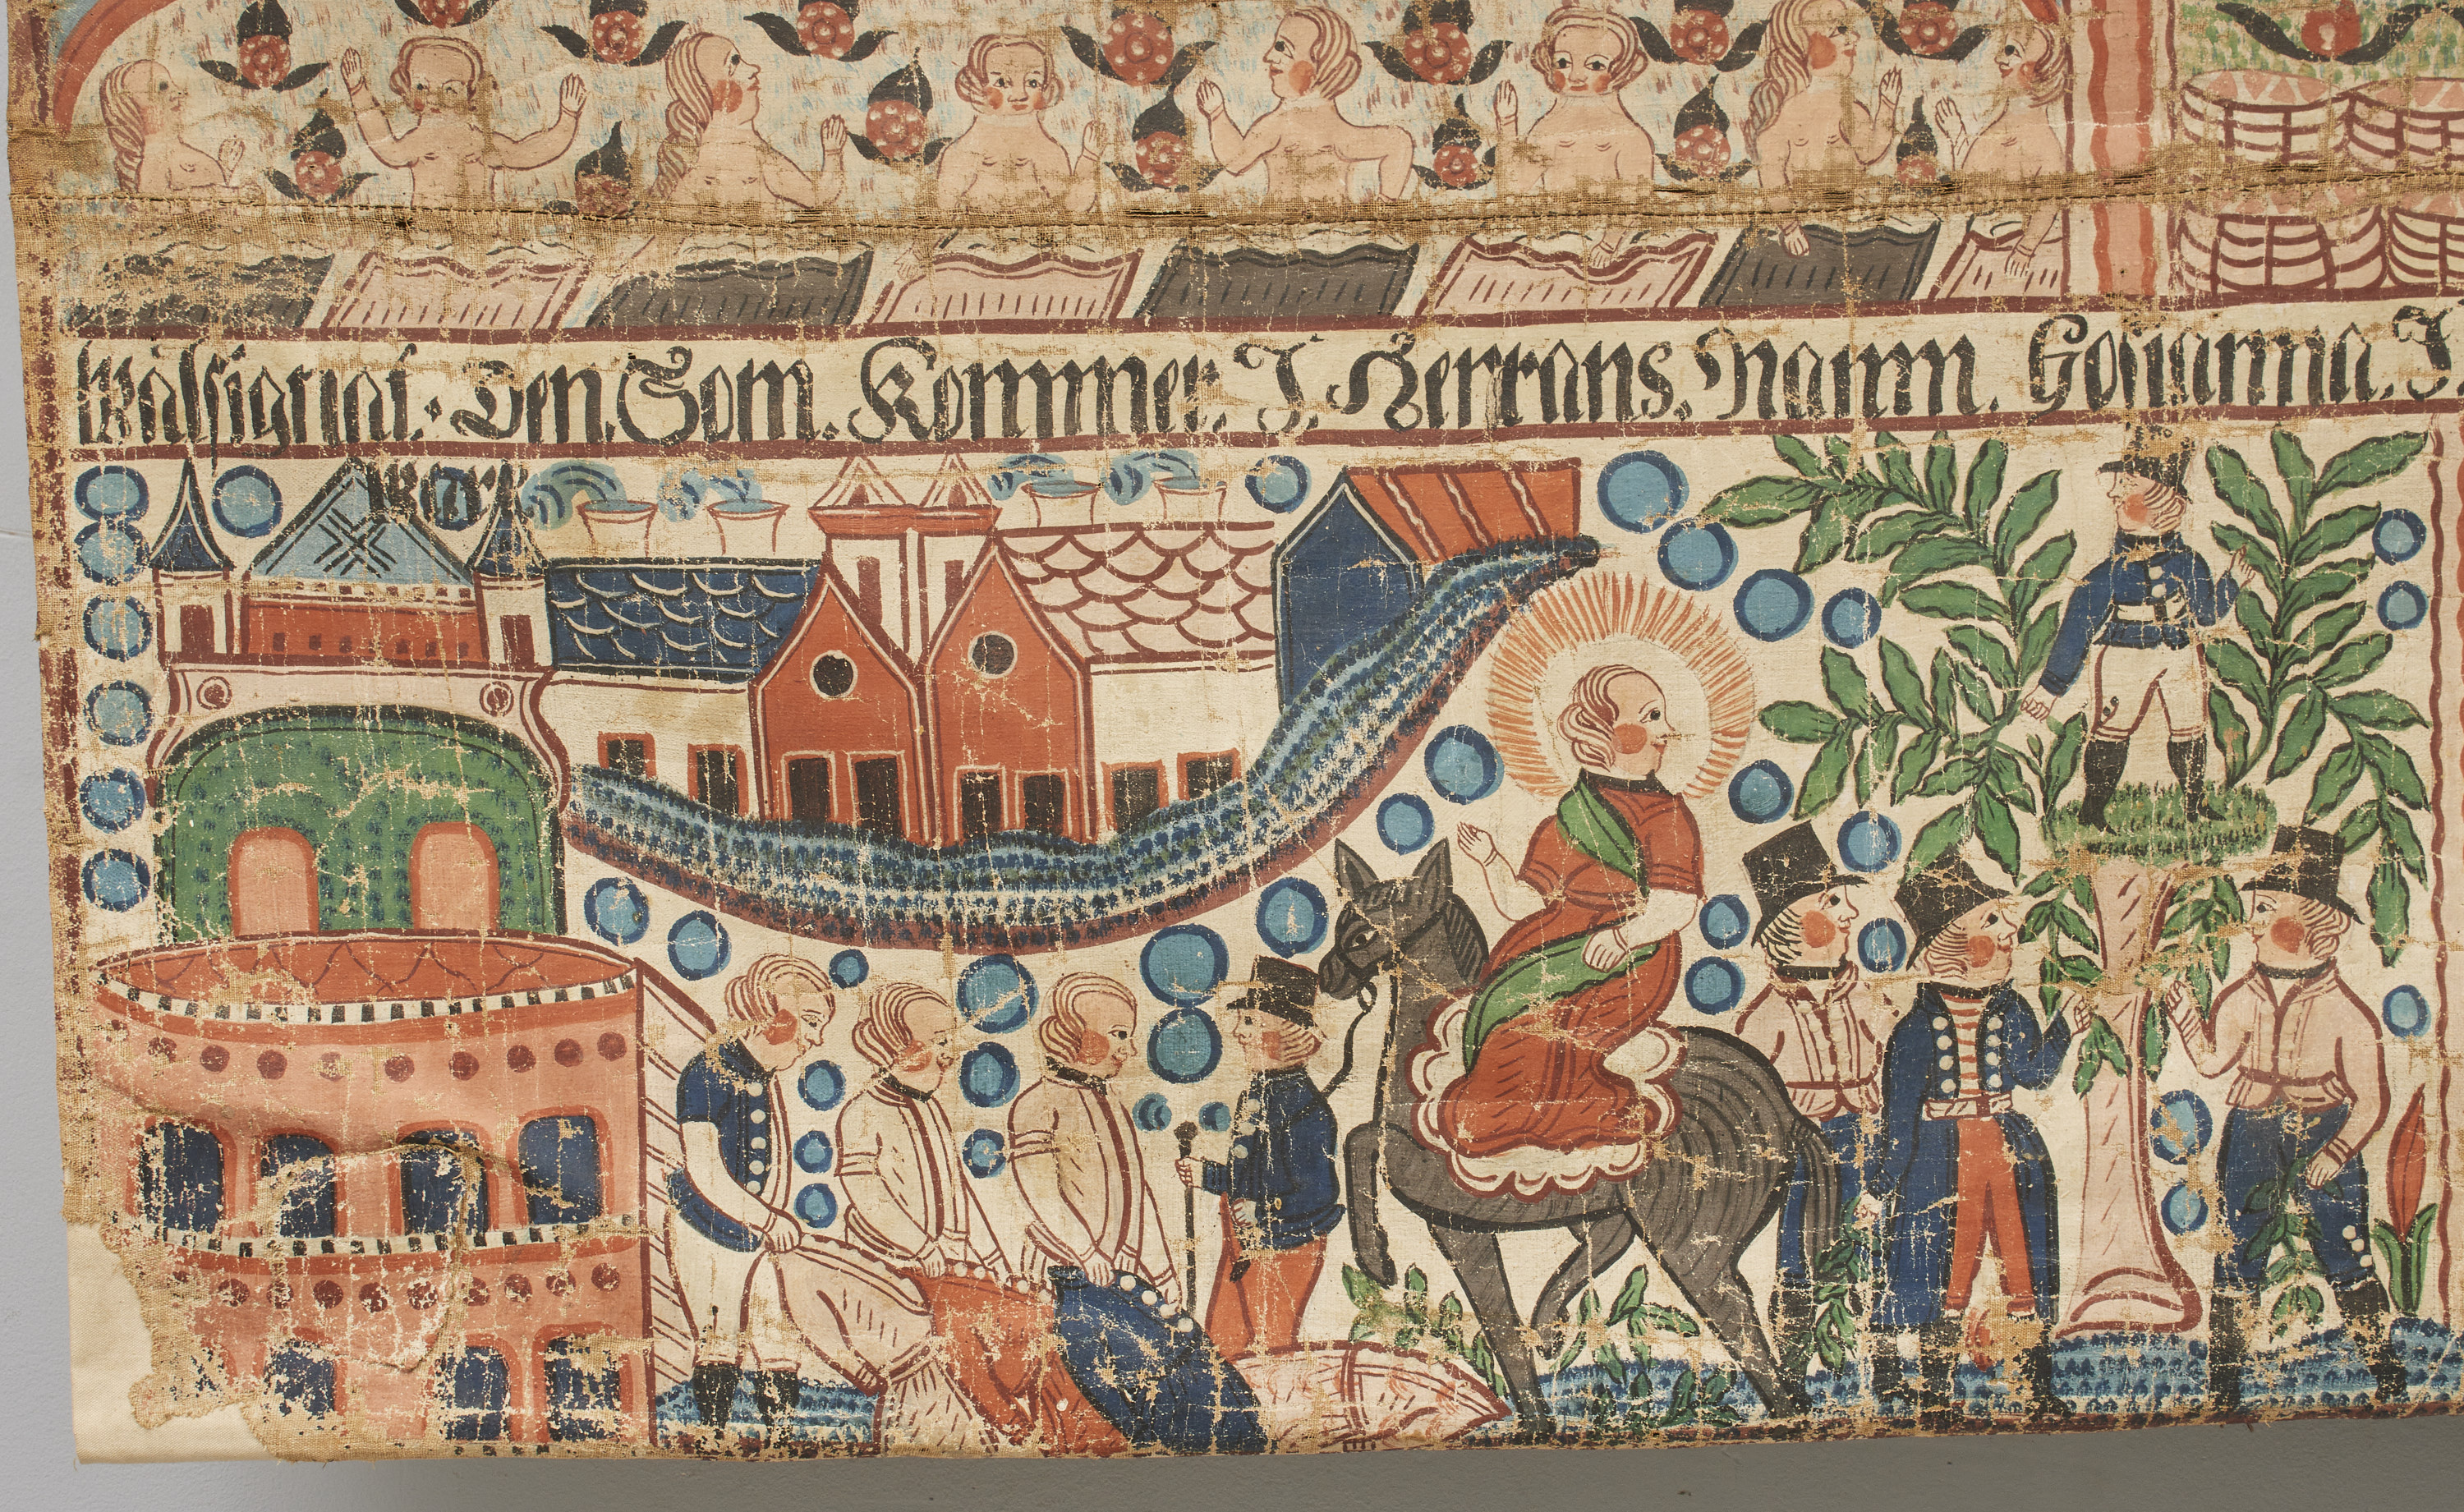 Wälsignat. Den. Som. Kommer. I. Herrans. Namn. Hosianna. I